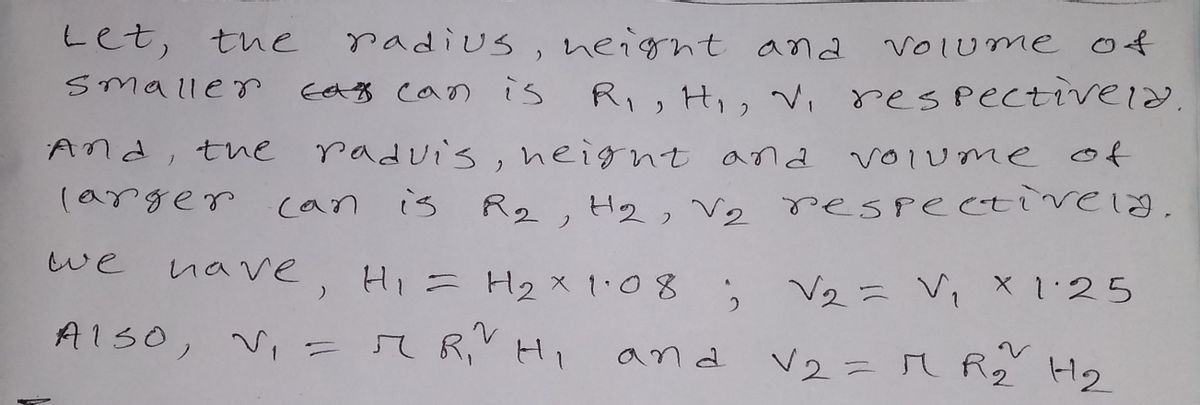 Let, the radius, height and volume of
smaller can is R₁, H₁, V₁ respectively.
And, the raduis, height and volume of
larger can is R₂, H₂, V₂ respectively.
We have, H₁ = H₂ × 1.08 ; V₂ = V₁ × 1.25
Also, V₁ = π R₁² H₁ and V₂ = π R₂² H₂